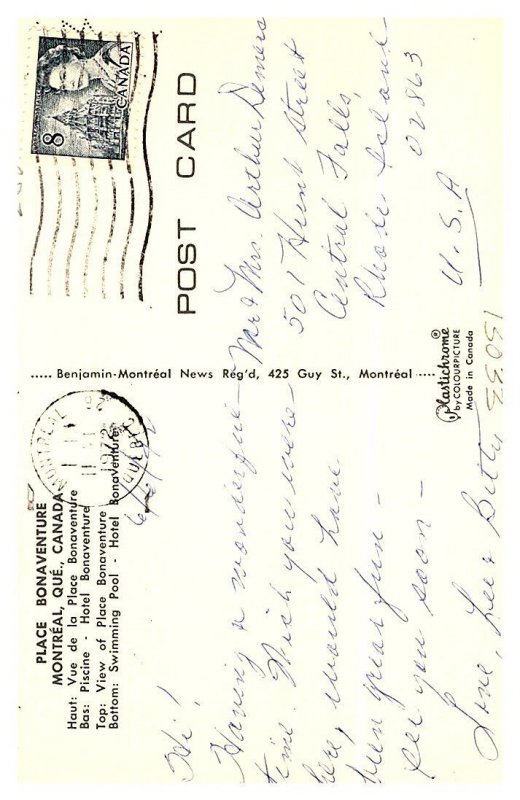 PLACE BONAVENTURE
MONTRÉAL, QUÉ., CANADA
Haut: Vue de la Place Bonaventure
Bas: Piscine - Hotel Bonaventure
Top: View of Place Bonaventure
Bottom: Swimming Pool - Hotel Bonaventure
MONTREAL
QUÉBEC
Hi!
Having a wonderful
time. Wish you were
here, would have
been great fun -
see you soon -
Love, Lee & Betty
..... Benjamin-Montréal News Reg'd, 425 Guy St., Montréal .....
Plastichrome®
by COLOURPICTURE
Made in Canada
POST CARD
CANADA
8
Mr & Mrs. Arthur Demers
501 Hunt Street
Central Falls,
Rhode Island
02863
U.S.A